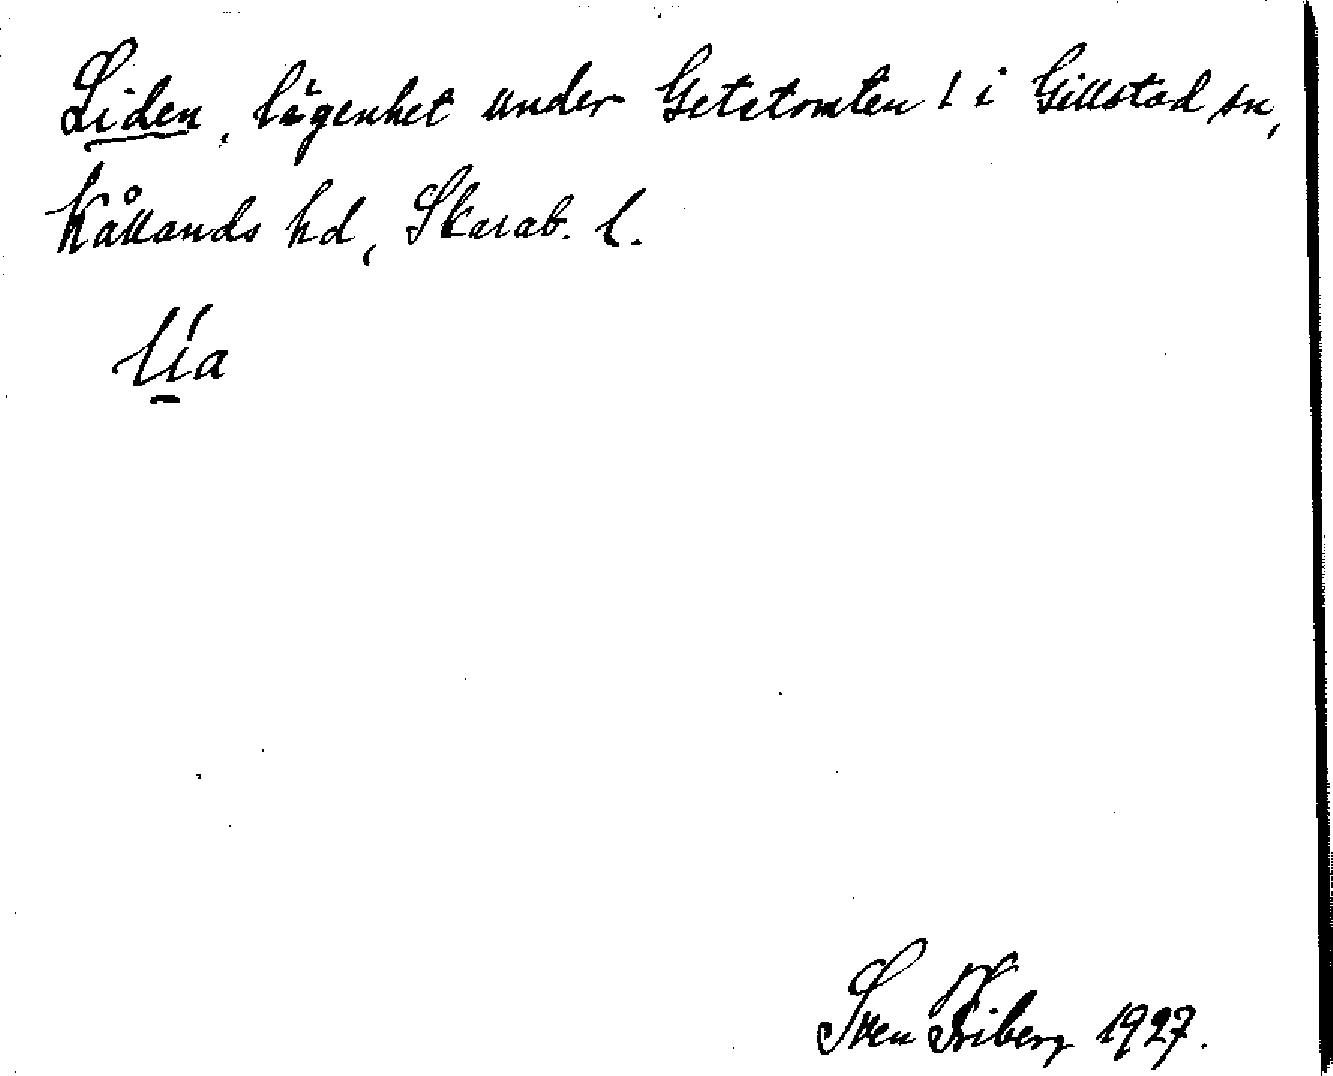 Liden, lägenhet under Getetomten 1 i Gillstad sn,
Kållands hd, Skarab. l.
lía
Sven Friberg 1927.